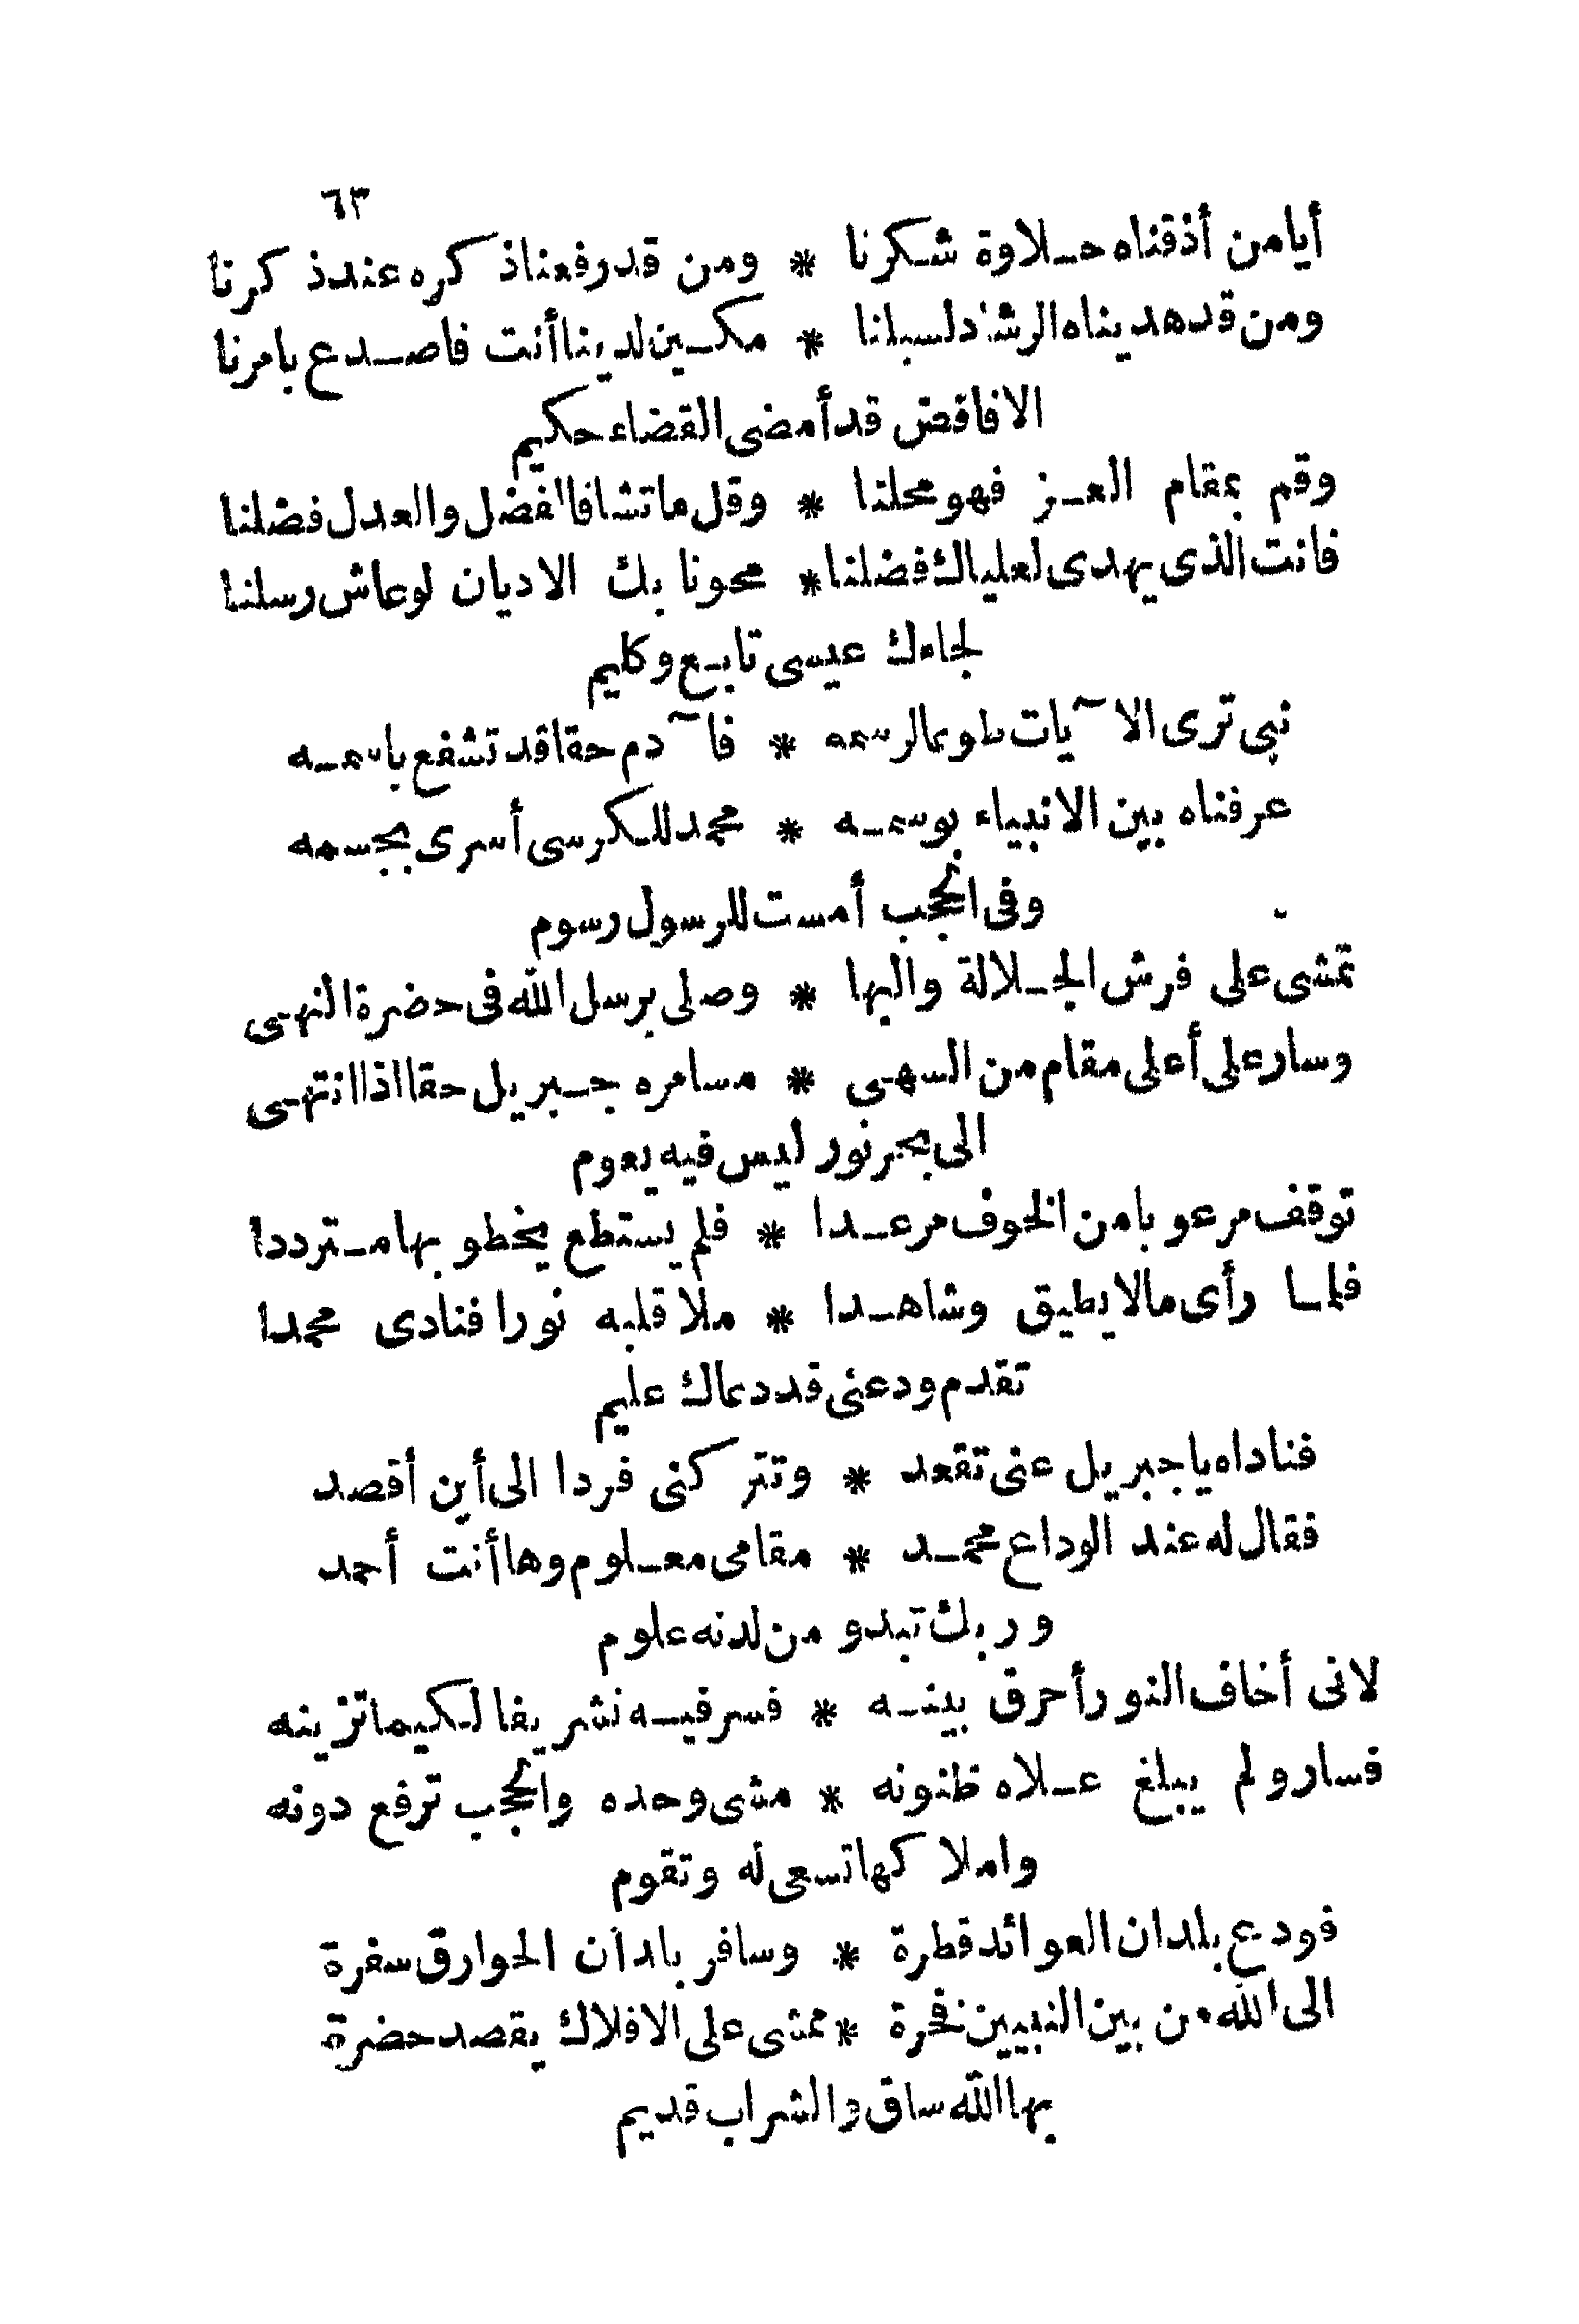 ٦٣
أيا من أذقناه حلاوة شكرنا * ومن قد رفعنا ذكره عند ذكرنا
ومن قد هديناه الرشاد لسبلنا * مكين لدينا أنت فاصدع بامرنا
الا فاقض قد أمضى القضاء حكيم
وقم بمقام العز فهو محلنا * وقل ما تشا فالفضل والعدل فضلنا
فانت الذى يهدى لعلياك فضلنا * محونا بك الاديان لو عاش رسلنا
لجاءك عيسى تابع وكليم
نبى ترى الآيات طوعا لرسمه * فآدم حقا قد تشفع باسمه
عرفناه بين الانبياء بوسمه * محمد للكرسى أسرى بجسمه
وفى الحجب أمست للرسول رسوم
تمشى على فرش الجلالة والبها * وصلى برسل الله فى حضرة النهى
وسار على أعلى مقام من السهى * مسامره جبريل حقا اذا انتهى
الى بحر نور ليس فيه يعوم
توقف مرعوبا من الخوف مرعدا * فلم يستطع يخطو بها مترددا
فلما رأى ما لا يطيق وشاهدا * ملا قلبه نورا فنادى محمدا
تقدم ودعنى قد دعاك عليم
فناداه يا جبريل عنى تقعد * وتتركنى فردا الى أين أقصد
فقال له عند الوداع محمد * مقامى معلوم وها أنت أحمد
وربك تبدو من لدنه علوم
لانى أخاف النور أحرق بينه * فسر فيه تشريفا لكيما تزينه
فسار ولم يبلغ علاه ظنونه * مشى وحده والحجب ترفع دونه
واملاكها تسعى له وتقوم
فودع بلدان العوائد قطرة * وسافر بلدان الخوارق سفرة
الى الله من بين النبيين فخرة * ممشى على الافلاك يقصد حضرة
بها الله ساق والشراب قديم